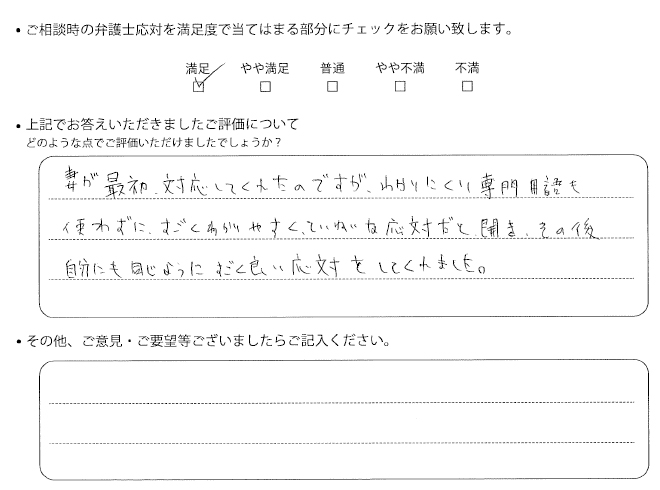 ・ご相談時の弁護士応対を満足度で当てはまる部分にチェックをお願い致します。
満足 やや満足 普通 やや不満 不満
・上記でお答えいただきましたご評価について
どのような点でご評価いただけましたでしょうか？
妻が最初、対応してくれたのですが、わかりにくい専門用語も
使わずに、すごくわかりやすく、ていねいな応対だと聞き、その後
自分にも同じようにすごく良い応対をしてくれました。
・その他、ご意見・ご要望等ございましたらご記入ください。